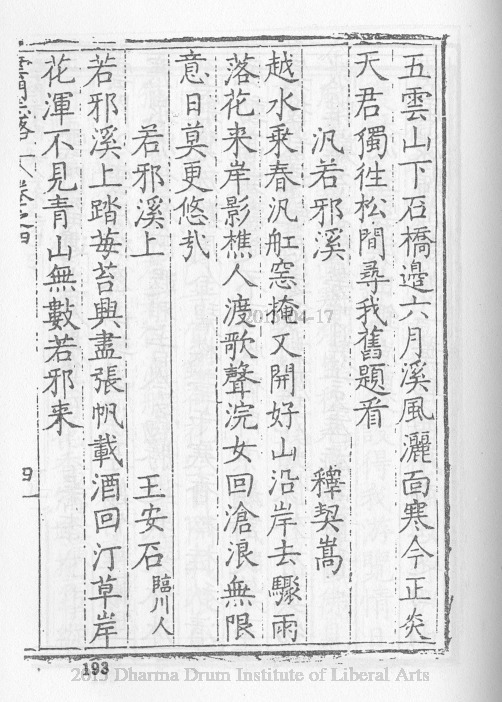 五雲山下石橋邊六月溪風灑面寒今正炎
天君獨徃松間尋我舊題看
汎若邪溪 釋契嵩
越水乗春汎舡窓掩又開好山沿岸去驟雨
落花来岸影樵人渡歌聲浣女回滄浪無限
意日莫更悠㢤
若邪溪上 王安石 臨川人
若邪溪上踏莓苔興盡張帆載酒回汀草岸
花渾不見青山無數若邪来
雲門志略 卷之四
四一
193
2015-04-17
2015 Dharma Drum Institute of Liberal Arts